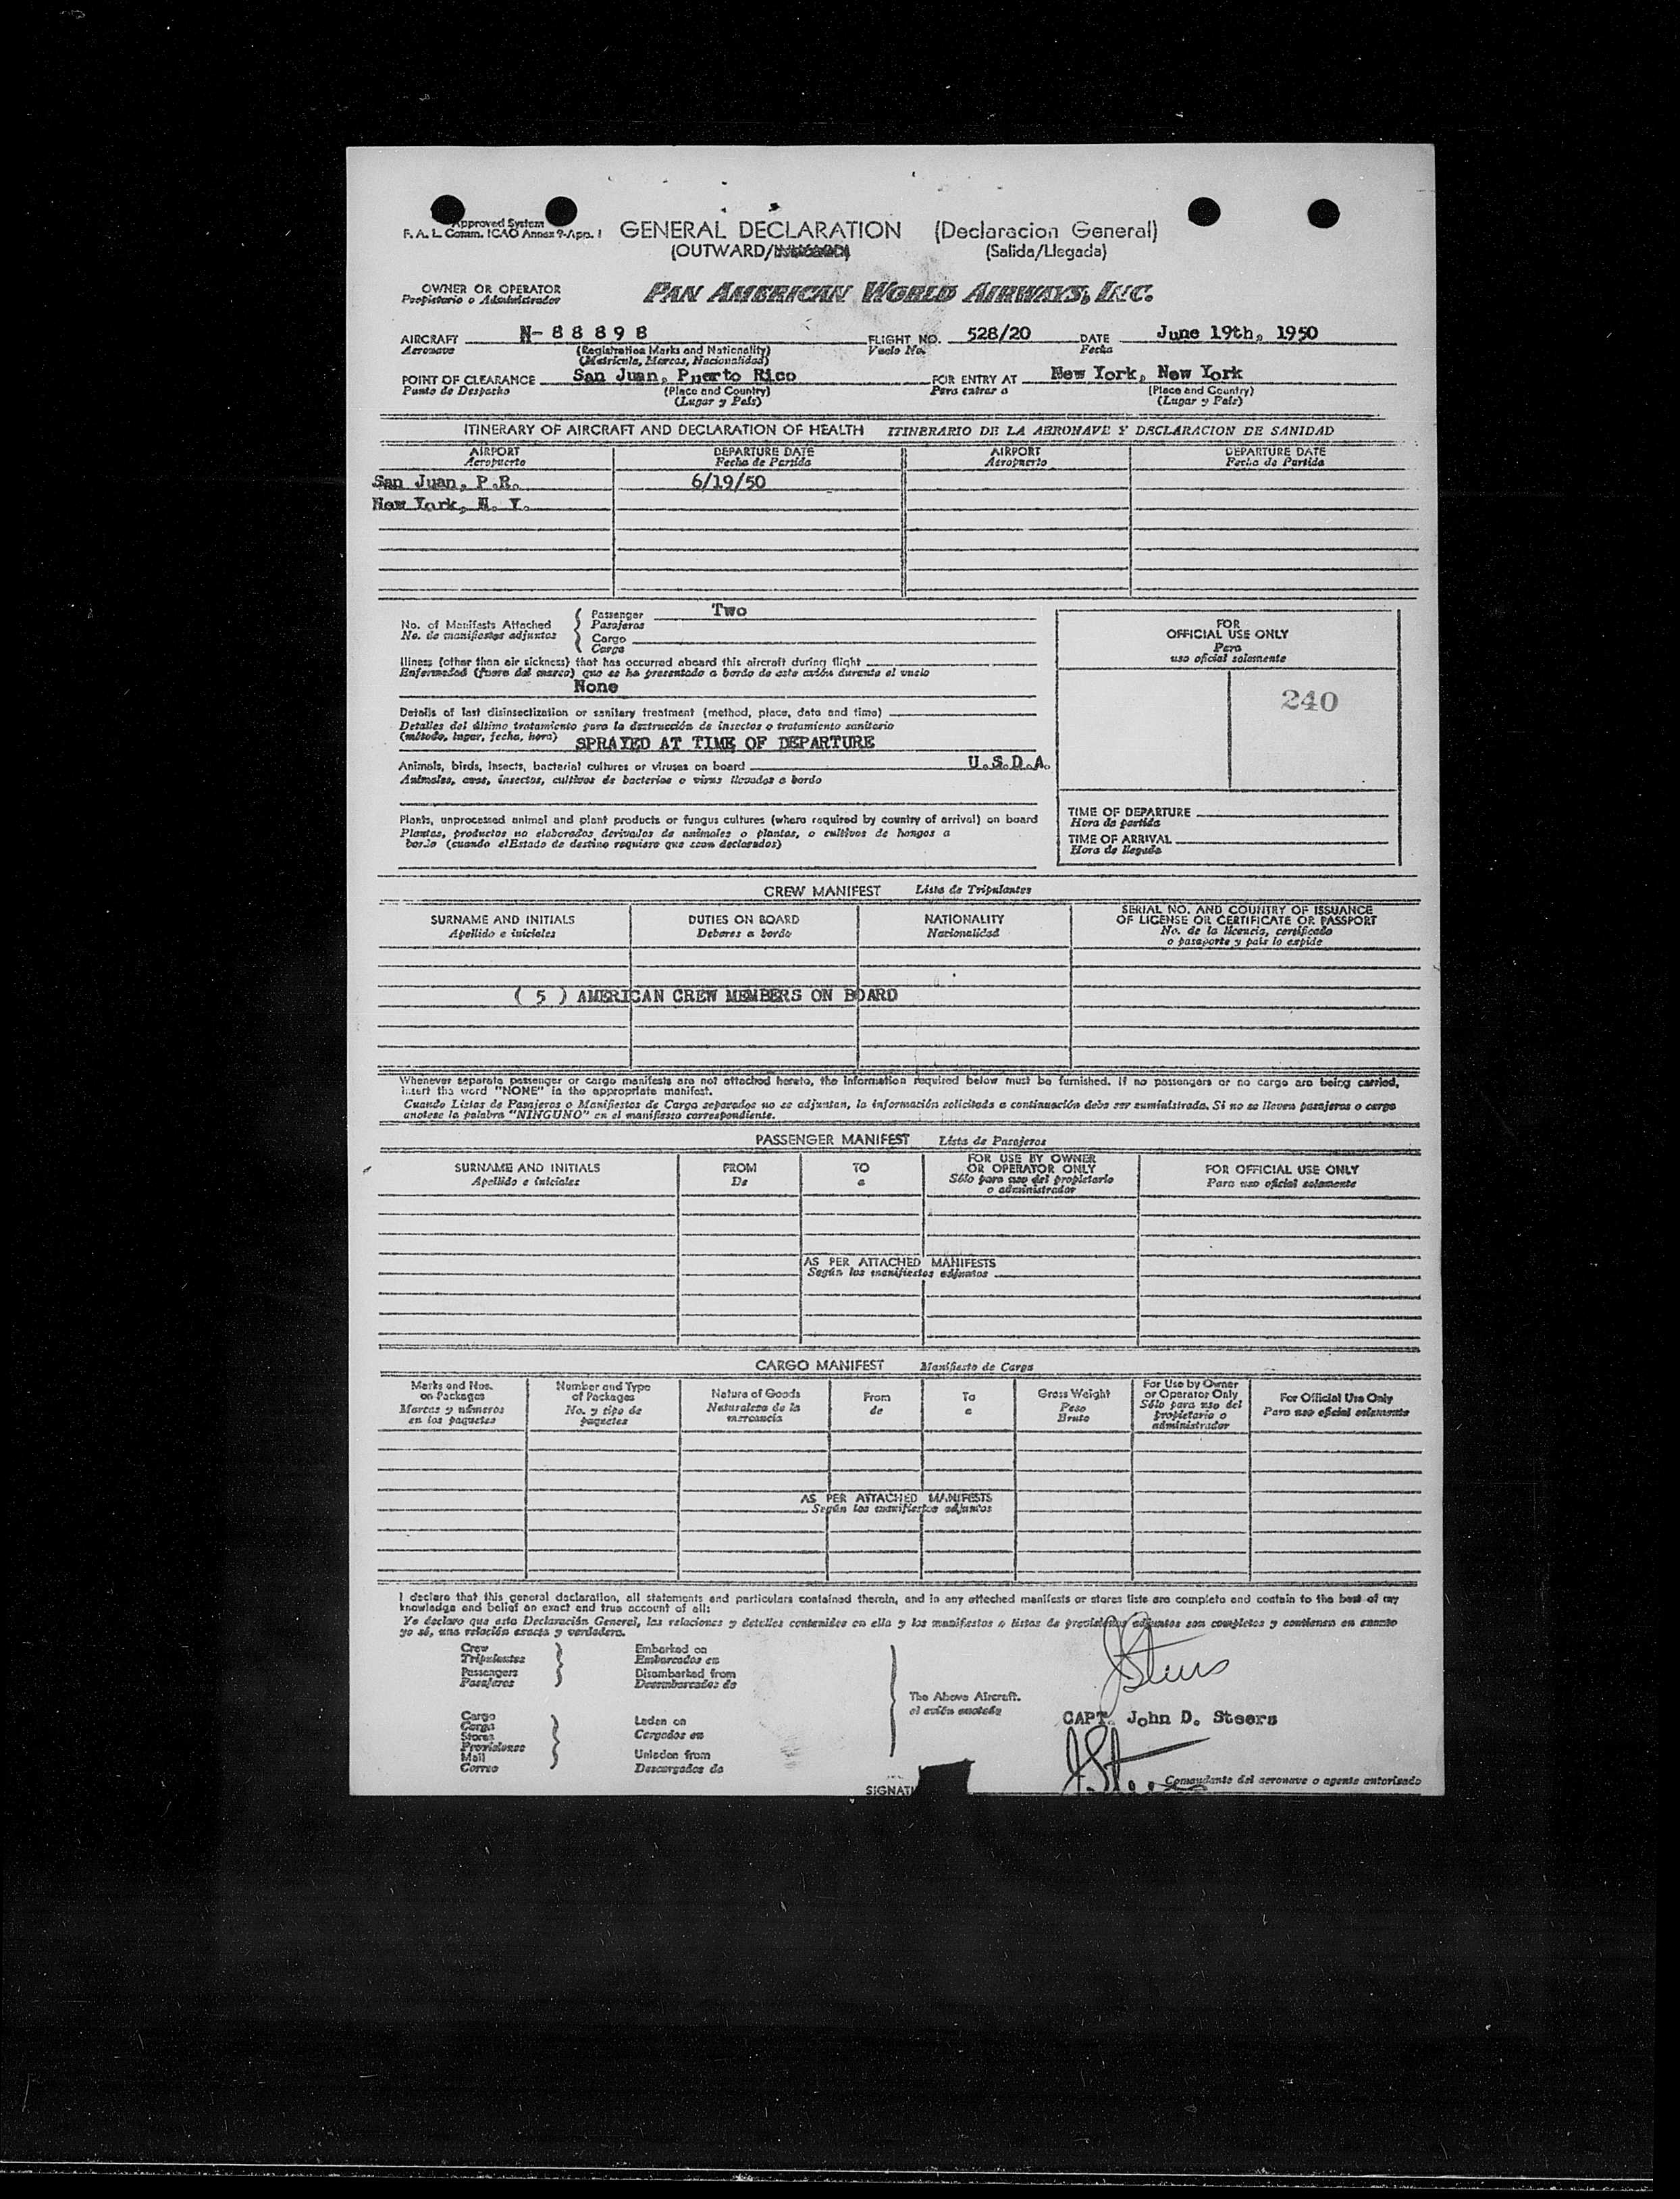 Approved System
F. A. L. Comm. ICAO Annex 9-App. 1
GENERAL DECLARATION (Declaracion General)
(OUTWARD/ (Salida/Llegada)
OWNER OR OPERATOR
Propietario o Administrador
PAN AMERICAN WORLD AIRWAYS, INC.
AIRCRAFT N- 8 8 8 9 8 FLIGHT NO. 528/20 DATE June 19th, 1950
Aeronave (Registration Marks and Nationality) Vuelo No. Fecha
(Matrícula, Marcas, Nacionalidad)
POINT OF CLEARANCE San Juan, Puerto Rico FOR ENTRY AT New York, New York
Punto de Despacho (Place and Country) Para entrar a (Place and Country)
(Lugar y País) (Lugar y País)
ITINERARY OF AIRCRAFT AND DECLARATION OF HEALTH ITINERARIO DE LA AERONAVE Y DECLARACION DE SANIDAD
AIRPORT DEPARTURE DATE AIRPORT DEPARTURE DATE
Aeropuerto Fecha de Partida Aeropuerto Fecha de Partida
San Juan, P.R. 6/19/50
New York, N. Y.
No. of Manifests Attached
No. de manifiestos adjuntos
Passenger Two
Pasajeros
Cargo
Carga
Illness (other than air sickness) that has occurred aboard this aircraft during flight
Enfermedad (fuera del mareo) que se ha presentado a bordo de este avión durante el vuelo
None
Details of last disinsectization or sanitary treatment (method, place, date and time)
Detalles del último tratamiento para la destrucción de insectos o tratamiento sanitario
(método, lugar, fecha, hora) SPRAYED AT TIME OF DEPARTURE
Animals, birds, insects, bacterial cultures or viruses on board U.S.D.A.
Animales, aves, insectos, cultivos de bacterias o virus llevados a bordo
Plants, unprocessed animal and plant products or fungus cultures (where required by country of arrival) on board
Plantas, productos no elaborados derivados de animales o plantas, o cultivos de hongos a
bordo (cuando el Estado de destino requiere que sean declarados)
FOR
OFFICIAL USE ONLY
Para
uso oficial solamente
240
TIME OF DEPARTURE
Hora de partida
TIME OF ARRIVAL
Hora de llegada
CREW MANIFEST Lista de Tripulantes
SURNAME AND INITIALS DUTIES ON BOARD NATIONALITY SERIAL NO. AND COUNTRY OF ISSUANCE
OF LICENSE OR CERTIFICATE OR PASSPORT
Apellido e iniciales Deberes a bordo Nacionalidad No. de la licencia, certificado
o pasaporte y país lo expide
( 5 ) AMERICAN CREW MEMBERS ON BOARD
Whenever separate passenger or cargo manifests are not attached hereto, the information required below must be furnished. If no passengers or no cargo are being carried,
insert the word "NONE" in the appropriate manifest.
Cuando Listas de Pasajeros o Manifiestos de Carga separados no se adjuntan, la información solicitada a continuación debe ser suministrada. Si no se lleven pasajeros o carga
anotese la palabra "NINGUNO" en el manifiesto correspondiente.
PASSENGER MANIFEST Lista de Pasajeros
SURNAME AND INITIALS FROM TO FOR USE BY OWNER
OR OPERATOR ONLY FOR OFFICIAL USE ONLY
Apellido e iniciales De a Sólo para uso del propietario
o administrador Para uso oficial solamente
AS PER ATTACHED MANIFESTS
Según los manifiestos adjuntos
CARGO MANIFEST Manifiesto de Carga
Marks and Nos.
on Packages
Marcas y números
en los paquetes
Number and Type
of Packages
No. y tipo de
paquetes
Nature of Goods
Naturaleza de la
mercancía
From
de
To
a
Gross Weight
Peso
Bruto
For Use by Owner
or Operator Only
Sólo para uso del
propietario o
administrador
For Official Use Only
Para uso oficial solamente
AS PER ATTACHED MANIFESTS
Según los manifiestos adjuntos
I declare that this general declaration, all statements and particulars contained therein, and in any attached manifests or stores lists are complete and contain to the best of my
knowledge and belief an exact and true account of all:
Yo declaro que esta Declaración General, las relaciones y detalles contenidos en ella y los manifiestos o listas de provisiones adjuntos son completos y contienen en cuanto
yo sé, una relación exacta y verdadera.
Crew
Tripulantes
Passengers
Pasajeros
Embarked on
Embarcados en
Disembarked from
Desembarcados de
Cargo
Carga
Stores
Provisiones
Mail
Correo
Laden on
Cargados en
Unladen from
Descargados de
The Above Aircraft.
el avión anotado
JSteers
CAPT. John D. Steers
J.Steers
Comandante del aeronave o agente autorizado
SIGNAT